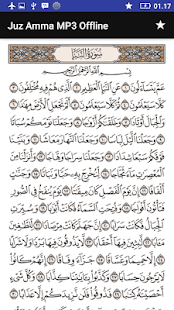 01.17
Juz Amma MP3 Offline
سُورَةُ النَّبَإِ
بِسْمِ اللَّهِ الرَّحْمَٰنِ الرَّحِيمِ
عَمَّ يَتَسَاءَلُونَ ١ عَنِ النَّبَإِ الْعَظِيمِ ٢ الَّذِي هُمْ فِيهِ مُخْتَلِفُونَ ٣
كَلَّا سَيَعْلَمُونَ ٤ ثُمَّ كَلَّا سَيَعْلَمُونَ ٥ أَلَمْ نَجْعَلِ الْأَرْضَ مِهَادًا ٦
وَالْجِبَالَ أَوْتَادًا ٧ وَخَلَقْنَاكُمْ أَزْوَاجًا ٨ وَجَعَلْنَا نَوْمَكُمْ سُبَاتًا ٩
وَجَعَلْنَا اللَّيْلَ لِبَاسًا ١٠ وَجَعَلْنَا النَّهَارَ مَعَاشًا ١١ وَبَنَيْنَا فَوْقَكُمْ
سَبْعًا شِدَادًا ١٢ وَجَعَلْنَا سِرَاجًا وَهَّاجًا ١٣ وَأَنْزَلْنَا مِنَ الْمُعْصِرَاتِ
مَاءً ثَجَّاجًا ١٤ لِنُخْرِجَ بِهِ حَبًّا وَنَبَاتًا ١٥ وَجَنَّاتٍ أَلْفَافًا ١٦
إِنَّ يَوْمَ الْفَصْلِ كَانَ مِيقَاتًا ١٧ يَوْمَ يُنْفَخُ فِي الصُّورِ
فَتَأْتُونَ أَفْوَاجًا ١٨ وَفُتِحَتِ السَّمَاءُ فَكَانَتْ أَبْوَابًا ١٩
وَسُيِّرَتِ الْجِبَالُ فَكَانَتْ سَرَابًا ٢٠ إِنَّ جَهَنَّمَ كَانَتْ مِرْصَادًا ٢١
لِلطَّاغِينَ مَآبًا ٢٢ لَابِثِينَ فِيهَا أَحْقَابًا ٢٣ لَا يَذُوقُونَ فِيهَا بَرْدًا وَلَا شَرَابًا ٢٤
إِلَّا حَمِيمًا وَغَسَّاقًا ٢٥ جَزَاءً وِفَاقًا ٢٦ إِنَّهُمْ كَانُوا لَا يَرْجُونَ
حِسَابًا ٢٧ وَكَذَّبُوا بِآيَاتِنَا كِذَّابًا ٢٨ وَكُلَّ شَيْءٍ
أَحْصَيْنَاهُ كِتَابًا ٢٩ فَذُوقُوا فَلَنْ نَزِيدَكُمْ إِلَّا عَذَابًا ٣٠